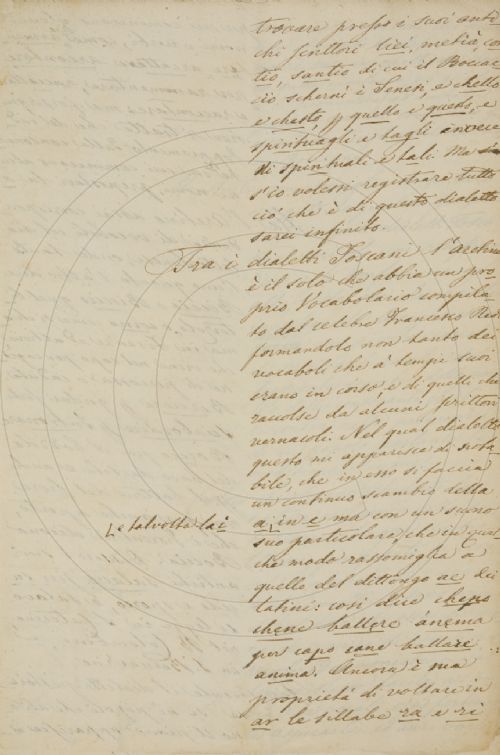 trovare presso i suoi anti
chi scrittori lici, metià, con
tio, santio di cui il Boccac
cio schernì i Senesi, e chello
e chesto, p quello e questo, e
spirituagli e tagli invece
di spirituali e tali. Ma
s'io volessi registrare tutto
ciò che è di questo dialetto
sarei infinito.
Tra i dialetti Toscani l'Aretino
è il solo che abbia un pro
prio Vocabolario compila
to dal celebre Francesco Red
formandolo non tanto dei
vocaboli che a' tempi suoi
erano in corso, e di quelli che
raccolse da alcuni scrittori
vernacoli. Nel qual dialetto
questo mi apparisce di nota
bile, che in esso si faccia
un continuo scambio della
e talvolta la i
a, in e ma con un suono
suo particolare, che in qual
che modo rassomiglia a
quello del dittongo ae dei
latini: così dice
chene battere ánema
per capo cane battare
anima. Ancora è sua
proprietà di voltare in
ar le sillabe ra e ri